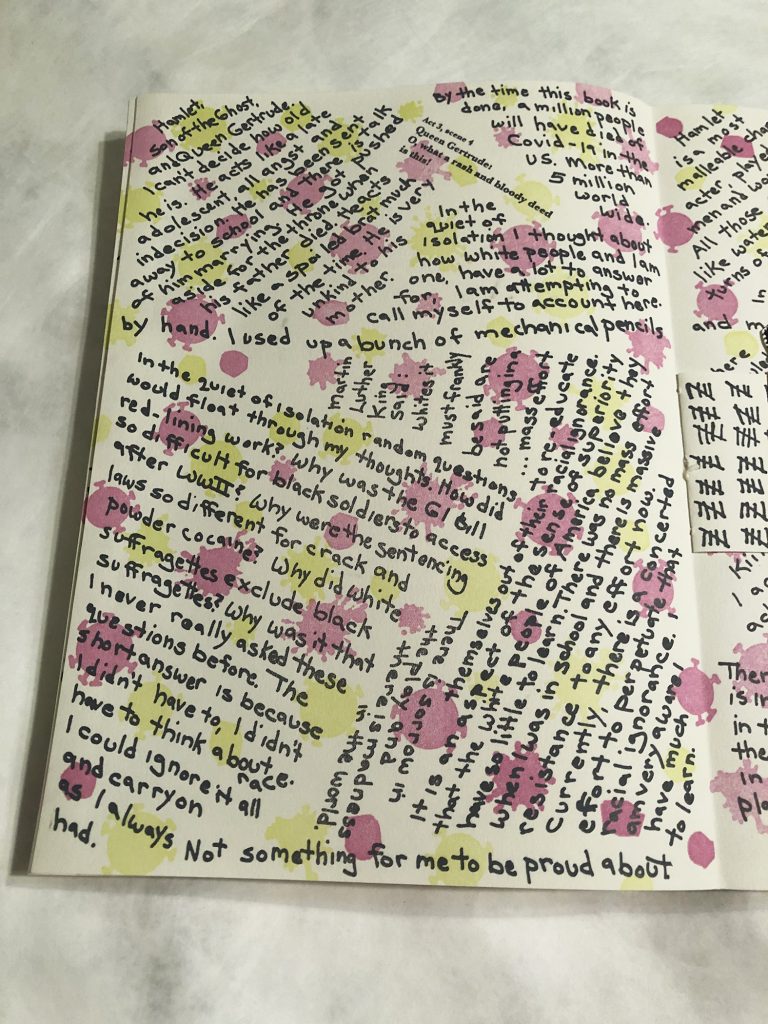 Hamlet,
son of the Ghost,
and Queen Gertrude.
I can't decide how old
he is. He acts like a late
adolescent all angst and
indecision. He has been sent
away to school and there is talk
of him marrying. He got pushed
aside for the throne when
his father died. He acts
like a spoiled brat much
of the time. He is very
unkind to his
mother.
Act 3, scene 4
Queen Gertrude:
O, what a rash and bloody deed
is this!
By the time this book is
done, a million people
will have died of
Covid-19 in the
US. more than
5 million
world
wide.
In the
quiet of
isolation I thought about
how white people and I am
one, have a lot to answer
for. I am attempting to
call myself to account here.
by hand. I used up a bunch of mechanical pencils
In the quiet of isolation random questions
would float through my thoughts. How did
red-lining work? Why was the GI Bill
so difficult for black soldiers to access
after WWII? Why were the sentencing
laws so different for crack and
powder cocaine? Why did white
suffragettes exclude black
suffragettes? Why was it that
I never really asked these
questions before. The
short answer is because
I didn't have to, I didn't
have to think about
race.
I could ignore it all
and carry on
as I always
had.
Martin
Luther
King
said:
Whites it
must frankly
be said are
not putting in
... mass effort
to re-educate
themselves out of their racial ignorance.
It is an aspect of the sense of superiority
that the white people of America believe they
have so little to learn. There was no mass effort
when I was in school and there is massive
resistance to any effort now.
Currently, there is a concerted
effort to perpetuate that
racial ignorance. I
am very aware I
have much
to learn.
There is sorrow in
the play and
there is madness
in the world.
Not something for me to be proud about
Hamlet
is a most
malleable
actor
men and
All those
like water
turns of
In
and
There
is in
in
the
in